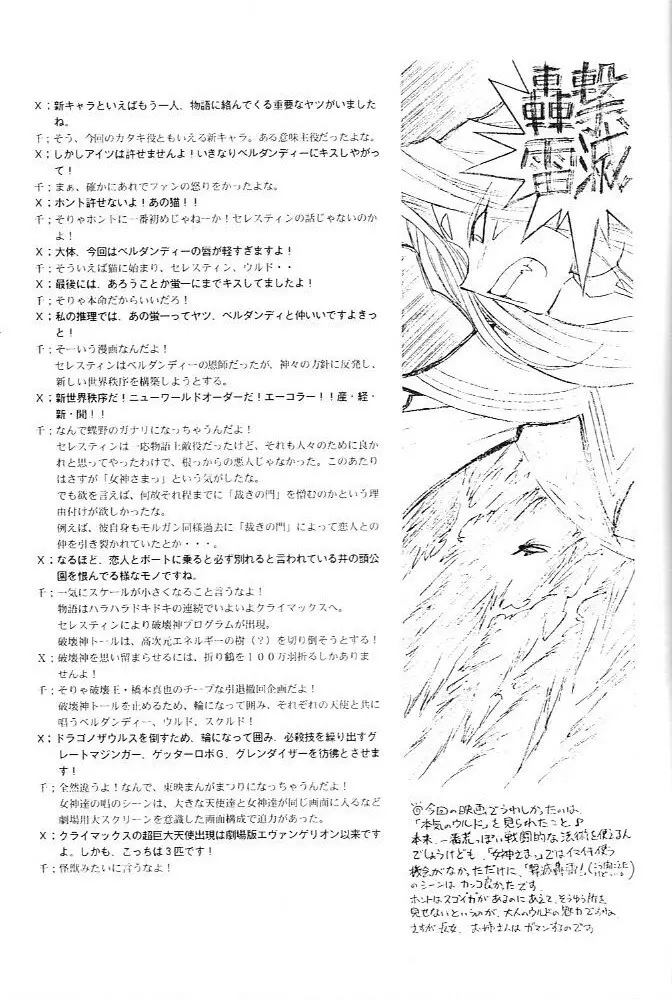 X；新キャラといえばもう一人、物語に絡んでくる重要なヤツがいました
ね。
千；そう、今回のカタキ役ともいえる新キャラ。ある意味主役だったよな。
X；しかしアイツは許せませんよ！いきなりベルダンディーにキスしやがっ
て！
千；まぁ、確かにあれでファンの怒りをかったよな。
X；ホント許せないよ！あの猫！！
千；そりゃホントに一番初めじゃねーか！セレスティンの話じゃないのか
よ！
X；大体、今回はベルダンディーの唇が軽すぎますよ！
千；そういえば猫に始まり、セレスティン、ウルド・・
X；最後には、あろうことか蛍一にまでキスしてましたよ！
千；そりゃ本命だからいいだろ！
X；私の推理では、あの蛍一ってヤツ、ベルダンディと仲いいですよきっ
と！
千；そーいう漫画なんだよ！
セレスティンはベルダンディーの恩師だったが、神々の方針に反発し、
新しい世界秩序を構築しようとする。
X；新世界秩序だ！ニューワールドオーダーだ！エーコラー！！産・経・
新・聞！！
千；なんで蝶野のガナリになっちゃうんだよ！
セレスティンは一応物語上敵役だったけど、それも人々のために良か
れと思ってやったわけで、根っからの悪人じゃなかった。このあたり
はさすが「女神さまっ」という気がしたな。
でも欲を言えば、何故それ程までに「裁きの門」を憎むのかという理
由付けが欲しかったな。
例えば、彼自身もモルガン同様過去に「裁きの門」によって恋人との
仲を引き裂かれていたとか・・・。
X；なるほど、恋人とボートに乗ると必ず別れると言われている井の頭公
園を恨んでる様なモノですね。
千；一気にスケールが小さくなること言うなよ！
物語はハラハラドキドキの連続でいよいよクライマックスへ。
セレスティンにより破壊神プログラムが出現。
破壊神トールは、高次元エネルギーの樹（？）を切り倒そうとする！
X；破壊神を思い留まらせるには、折り鶴を１００万羽折るしかありま
せんよ！
千；そりゃ破壊王・橋本真也のチープな引退撤回企画だよ！
破壊神トールを止めるため、輪になって囲み、それぞれの天使と共に
唱うベルダンディー、ウルド、スクルド！
X；ドラゴノザウルスを倒すため、輪になって囲み、必殺技を繰り出すグ
レートマジンガー、ゲッターロボG、グレンダイザーを彷彿とさせま
す！
千；全然違うよ！なんで、東映まんがまつりになっちゃうんだよ！
女神達の唱のシーンは、大きな天使達と女神達が同じ画面に入るなど
劇場用大スクリーンを意識した画面構成で迫力があった。
X；クライマックスの超巨大天使出現は劇場版エヴァンゲリオン以来です
よ。しかも、こっちは３匹です！
千；怪獣みたいに言うなよ！
撃滅
轟雷
◎今回の映画でうれしかったのは、
「本気のウルド」を見られたこと♪
本来、一番荒っぽい戦闘的な法術を使えるん
でしょうけども、「女神さまっ」ではイマイチ使う
機会がなかっただけに、「撃滅轟雷！」
のシーンは カッコ良かったです。
ホントはスゴイ力があるのにあえて、そうゆう所を
見せないというのが、大人のウルドの魅力ですよね。
さすが長女、お姉さんは ガマンするのです